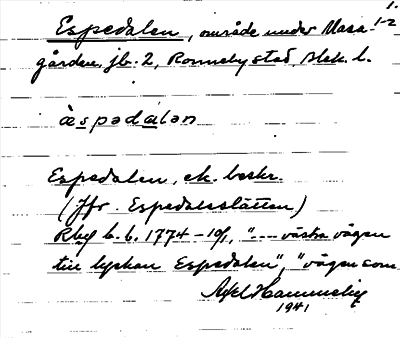 1.
Espedalen, område under Masa- 1-2
gården, jb. 2, Ronneby stad, Blek. l.
àspədalən
Espedalen, ek. beskr.
(Jfr. Espedalsslätten)
b. b. 1774-10/1, "--- västra vägen
till lyckan Espedalen", "vägen som
Axel Hammelin
1941